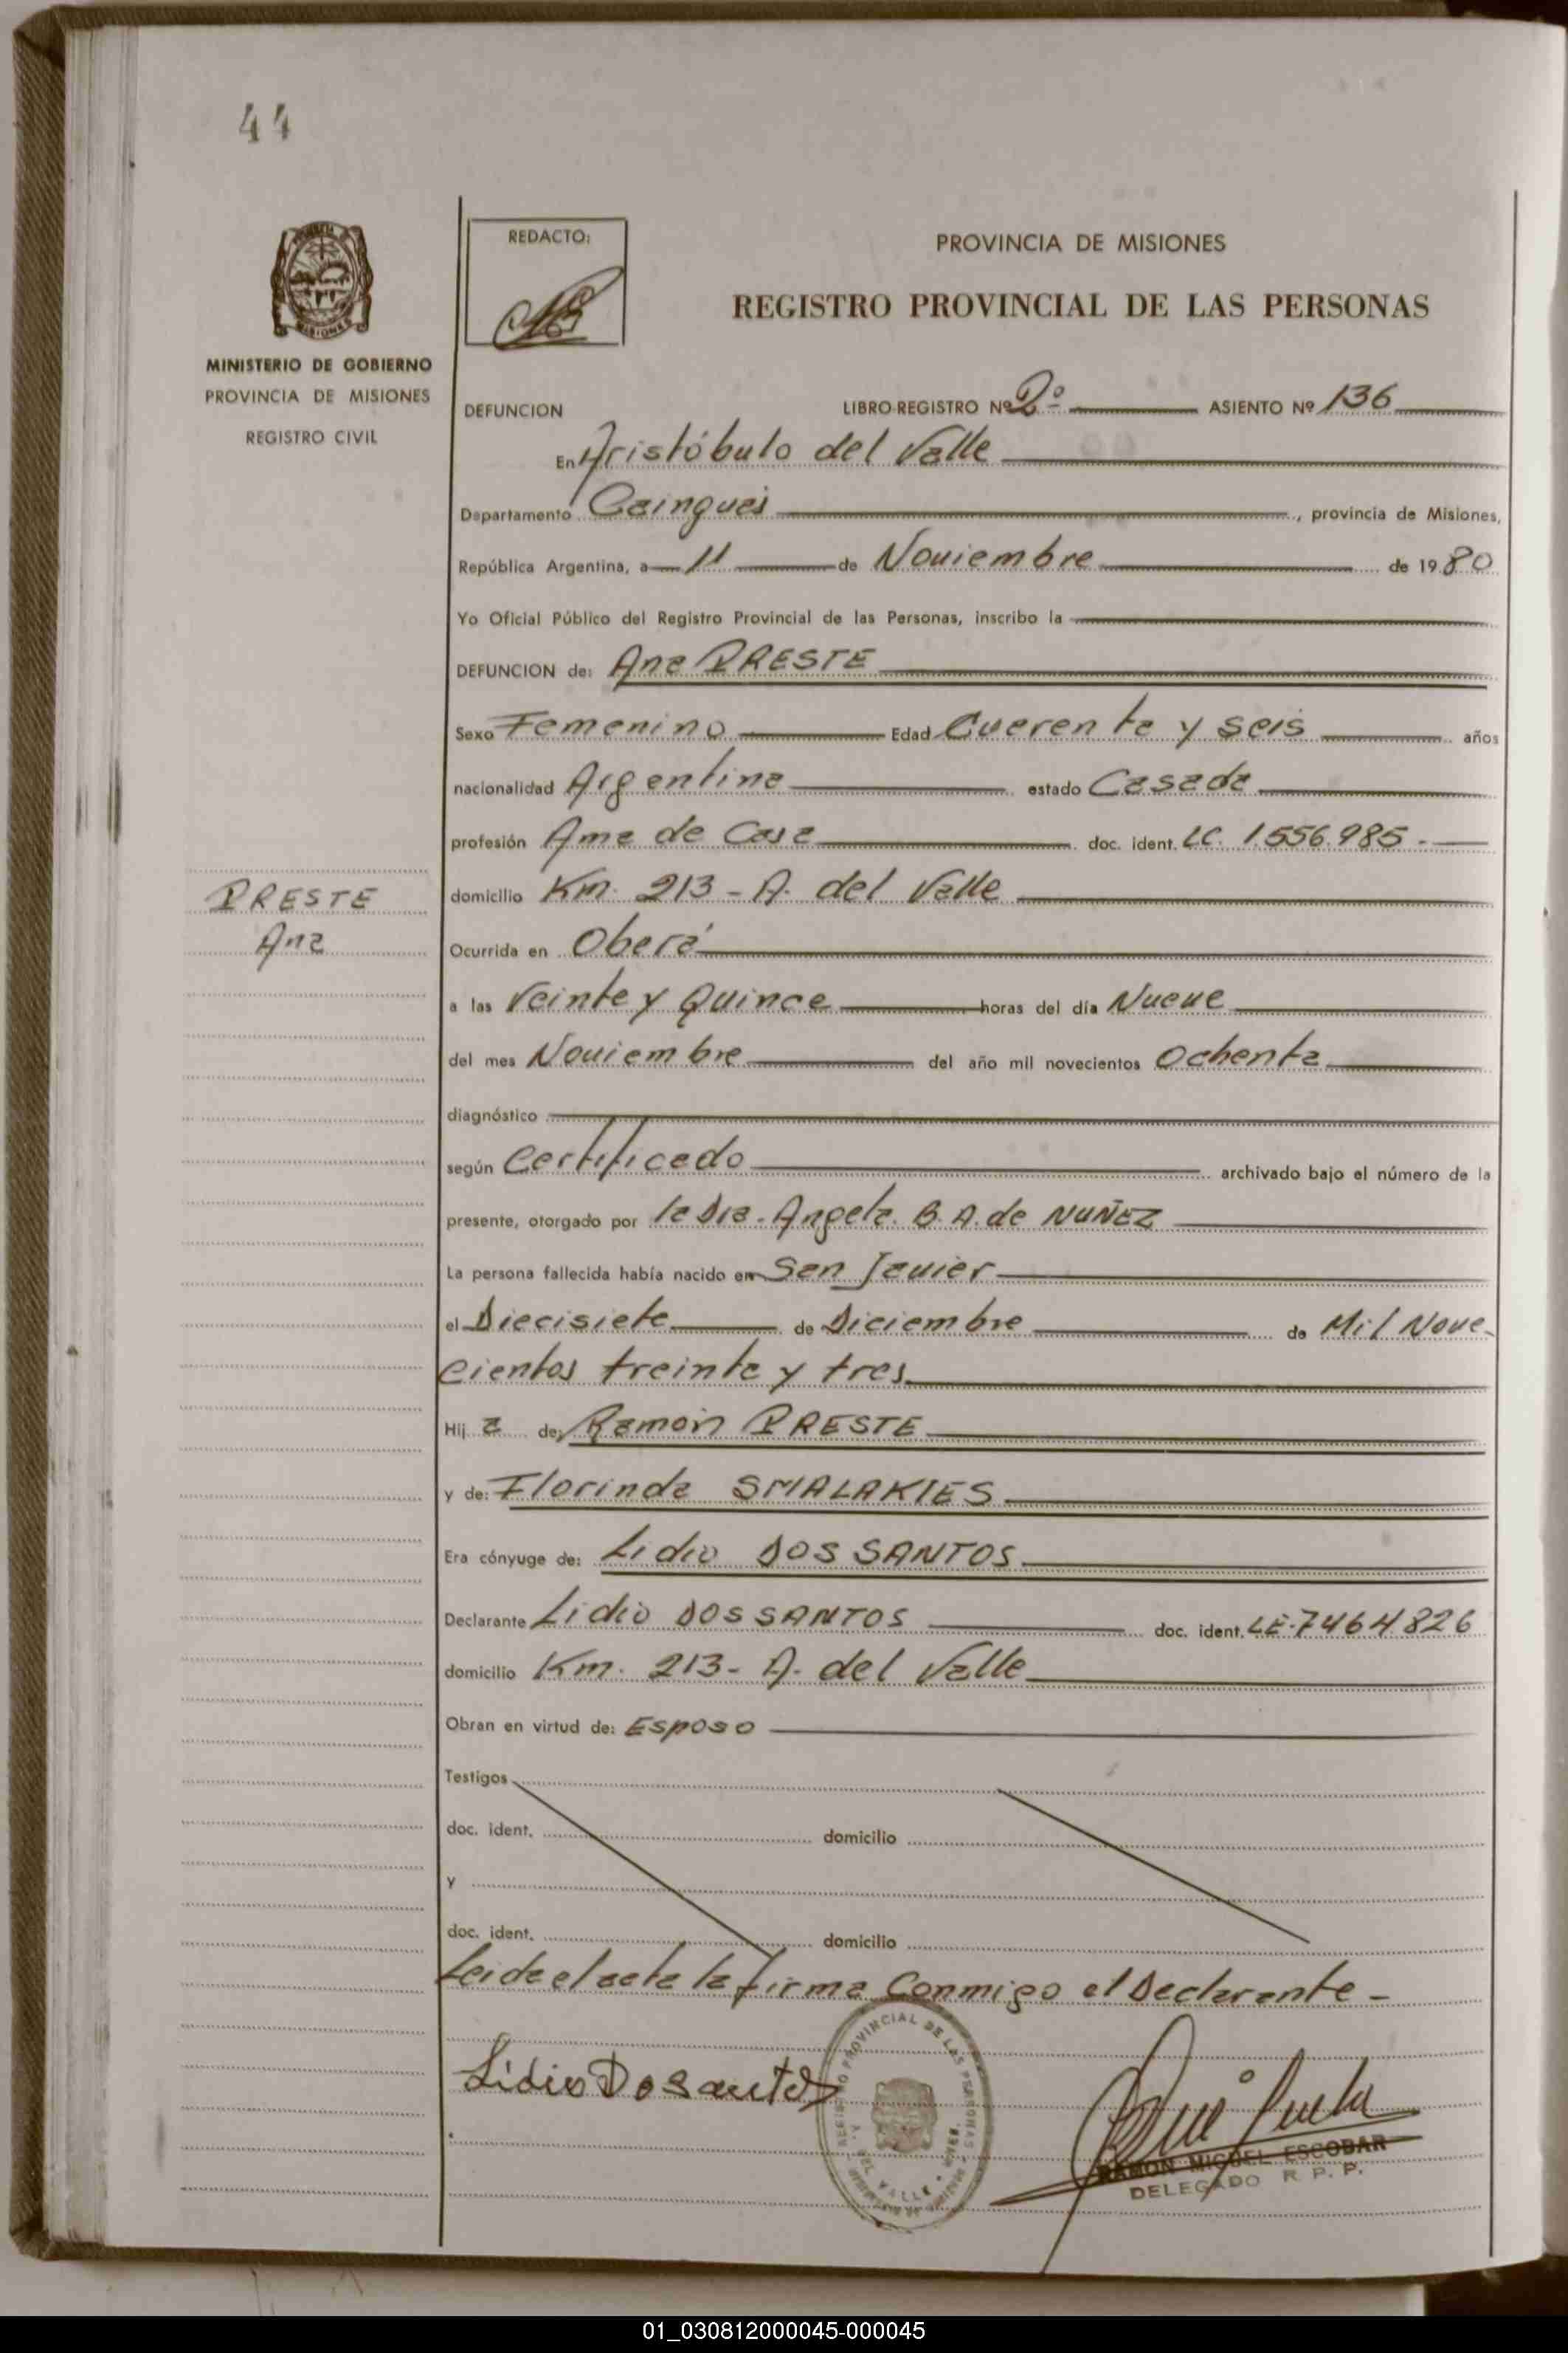 44
MINISTERIO DE GOBIERNO
PROVINCIA DE MISIONES
REGISTRO CIVIL
REDACTO:
PROVINCIA DE MISIONES
REGISTRO PROVINCIAL DE LAS PERSONAS
DEFUNCION LIBRO-REGISTRO Nº 2º ASIENTO Nº 136
En Aristóbulo del Valle
Departamento Cainguás, provincia de Misiones,
República Argentina, a 11 de Noviembre de 1980
Yo Oficial Público del Registro Provincial de las Personas, inscribo la
DEFUNCION de: Ana PRESTE
Sexo Femenino Edad Cuarenta y seis años
nacionalidad Argentina estado Casada
profesión Ama de Casa doc. ident. LC. 1.556.985.-
PRESTE
Ana
domicilio Km. 213 - A. del Valle
Ocurrida en Oberá
a las Veinte y Quince horas del día Nueve
del mes Noviembre del año mil novecientos Ochenta
diagnóstico
según Certificado archivado bajo el número de la
presente, otorgado por la Dra. Angela B. A. de NUÑEZ
La persona fallecida había nacido en San Javier
el Diecisiete de Diciembre de Mil Nove-
cientos treinta y tres
Hij a de: Ramón PRESTE
y de: Florinda SMALAKIES
Era cónyuge de: Lidio DOS SANTOS
Declarante Lidio DOS SANTOS doc. ident. LE. 7464826
domicilio Km. 213 - A. del Valle
Obran en virtud de: Esposo
Testigos
doc. ident. domicilio
y
doc. ident. domicilio
Leida el acta la firma Conmigo el Declarante -
Lidio Dosantos
REGISTRO PROVINCIAL DE LAS PERSONAS
A. DEL VALLE
RAMON MIGUEL ESCOBAR
DELEGADO R. P. P.
01_030812000045-000045